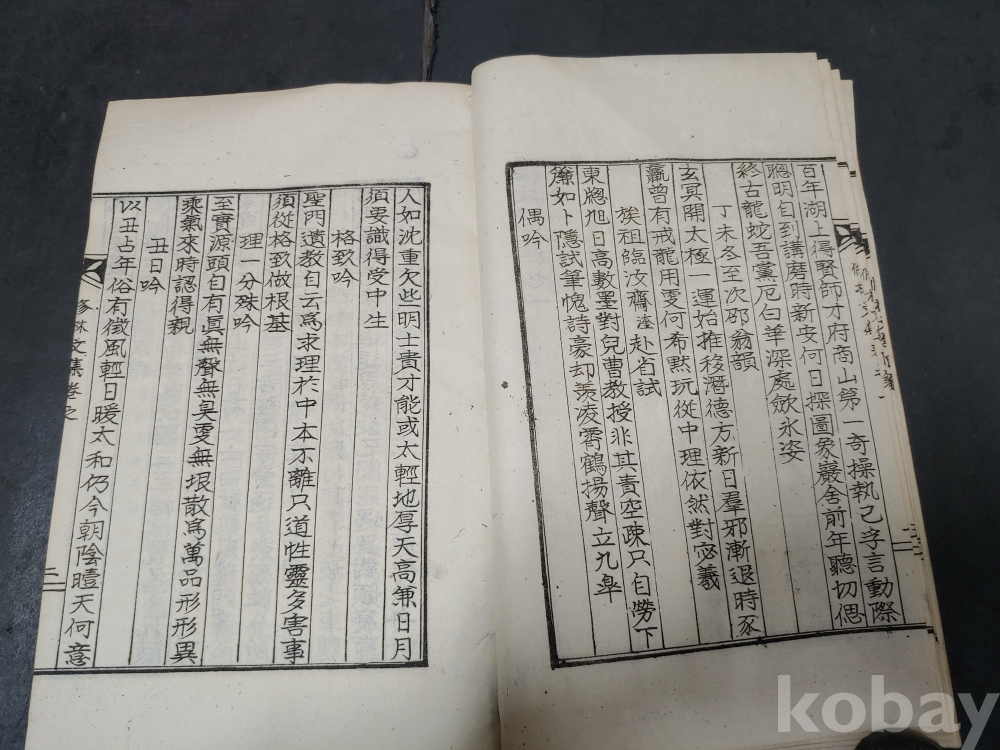 百年湖上得賢師才府商山第一奇操執己孚言動際
聰明自到講磨時新安何日探圖象巖舍前年聽切偲
終古龍蛇吾黨厄白華深處斂氷姿
丁未冬至次邵翁韻
玄冥開太極一運始推移潛德方新日羣邪漸退時豕
羸曾有戒龍用更何希默玩從中理依然對宓羲
族祖臨汶齋瀅赴省試
東牕旭日高數墨對兒曹教授非其責空疎只自勞下
簾如卜隱試筆愧詩豪却羨凌霄鶴揚聲立九臯
偶吟
人如沈重欠些明士貴才能或太輕地厚天高兼日月
須要識得受中生
格致吟
聖門遺教自云爲求理於中本不離只道性靈多害事
須從格致做根基
理一分殊吟
至實源頭自有眞無聲無臭更無垠散爲萬品形形異
乘氣來時認得親
丑日吟
以丑占年俗有徵風輕日暖太和仍今朝陰曀天何意
文集卷之
二
kobay